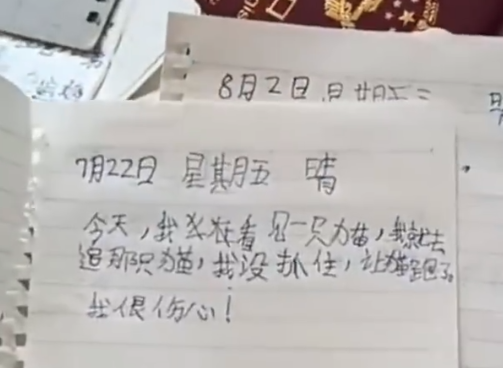 8月2日 星期二
7月22日 星期五 晴
今天,我在看见一只猫,我就去
追那只猫,我没抓住,让猫跑了。
我很伤心!